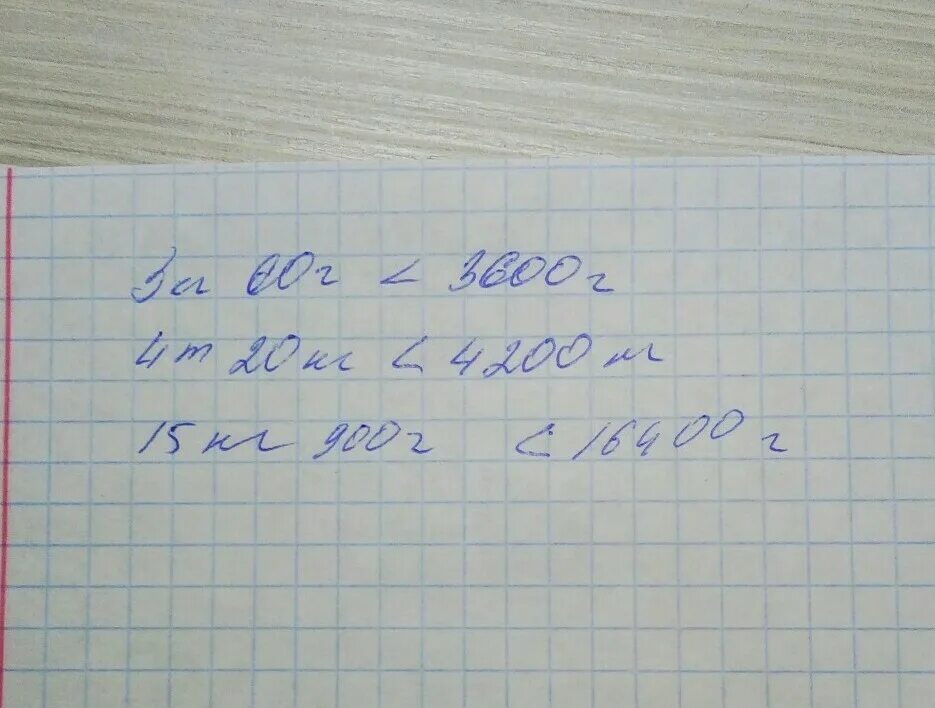 3кг 60г < 3600г
4т 20кг < 4200кг
15кг 900г < 16400г